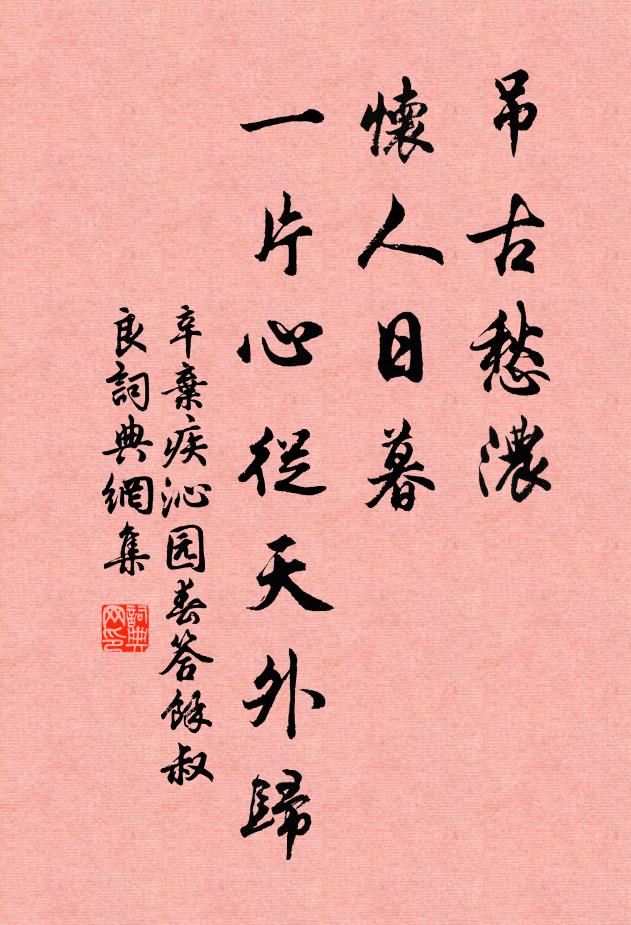 吊古愁濃
懷人日暮
一片心從天外歸
辛棄疾沁园春答餘叔
良詞典網集
詞典网印